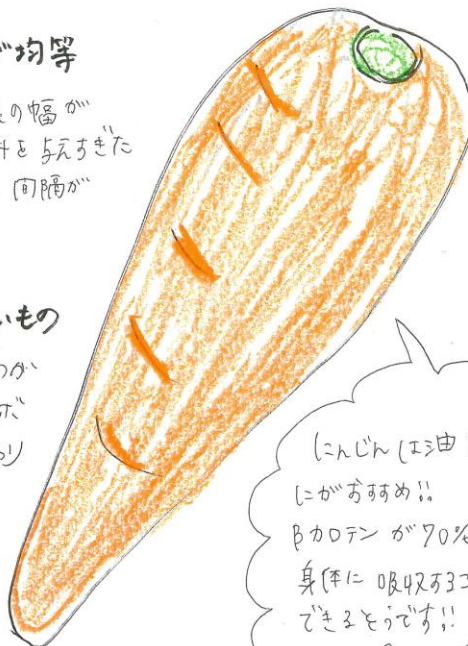 が均等
の幅が
与えすぎた
間隔が
いもの
にんじんは油
にがおすすめ!!
βカロテンが70%
身体に吸収するコ
できるそうです!!